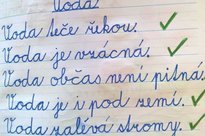 Voda
Voda teče řekou.
Voda je vzácná.
Voda občas není pitná.
Voda je i pod zemí.
Voda zalévá stromy.